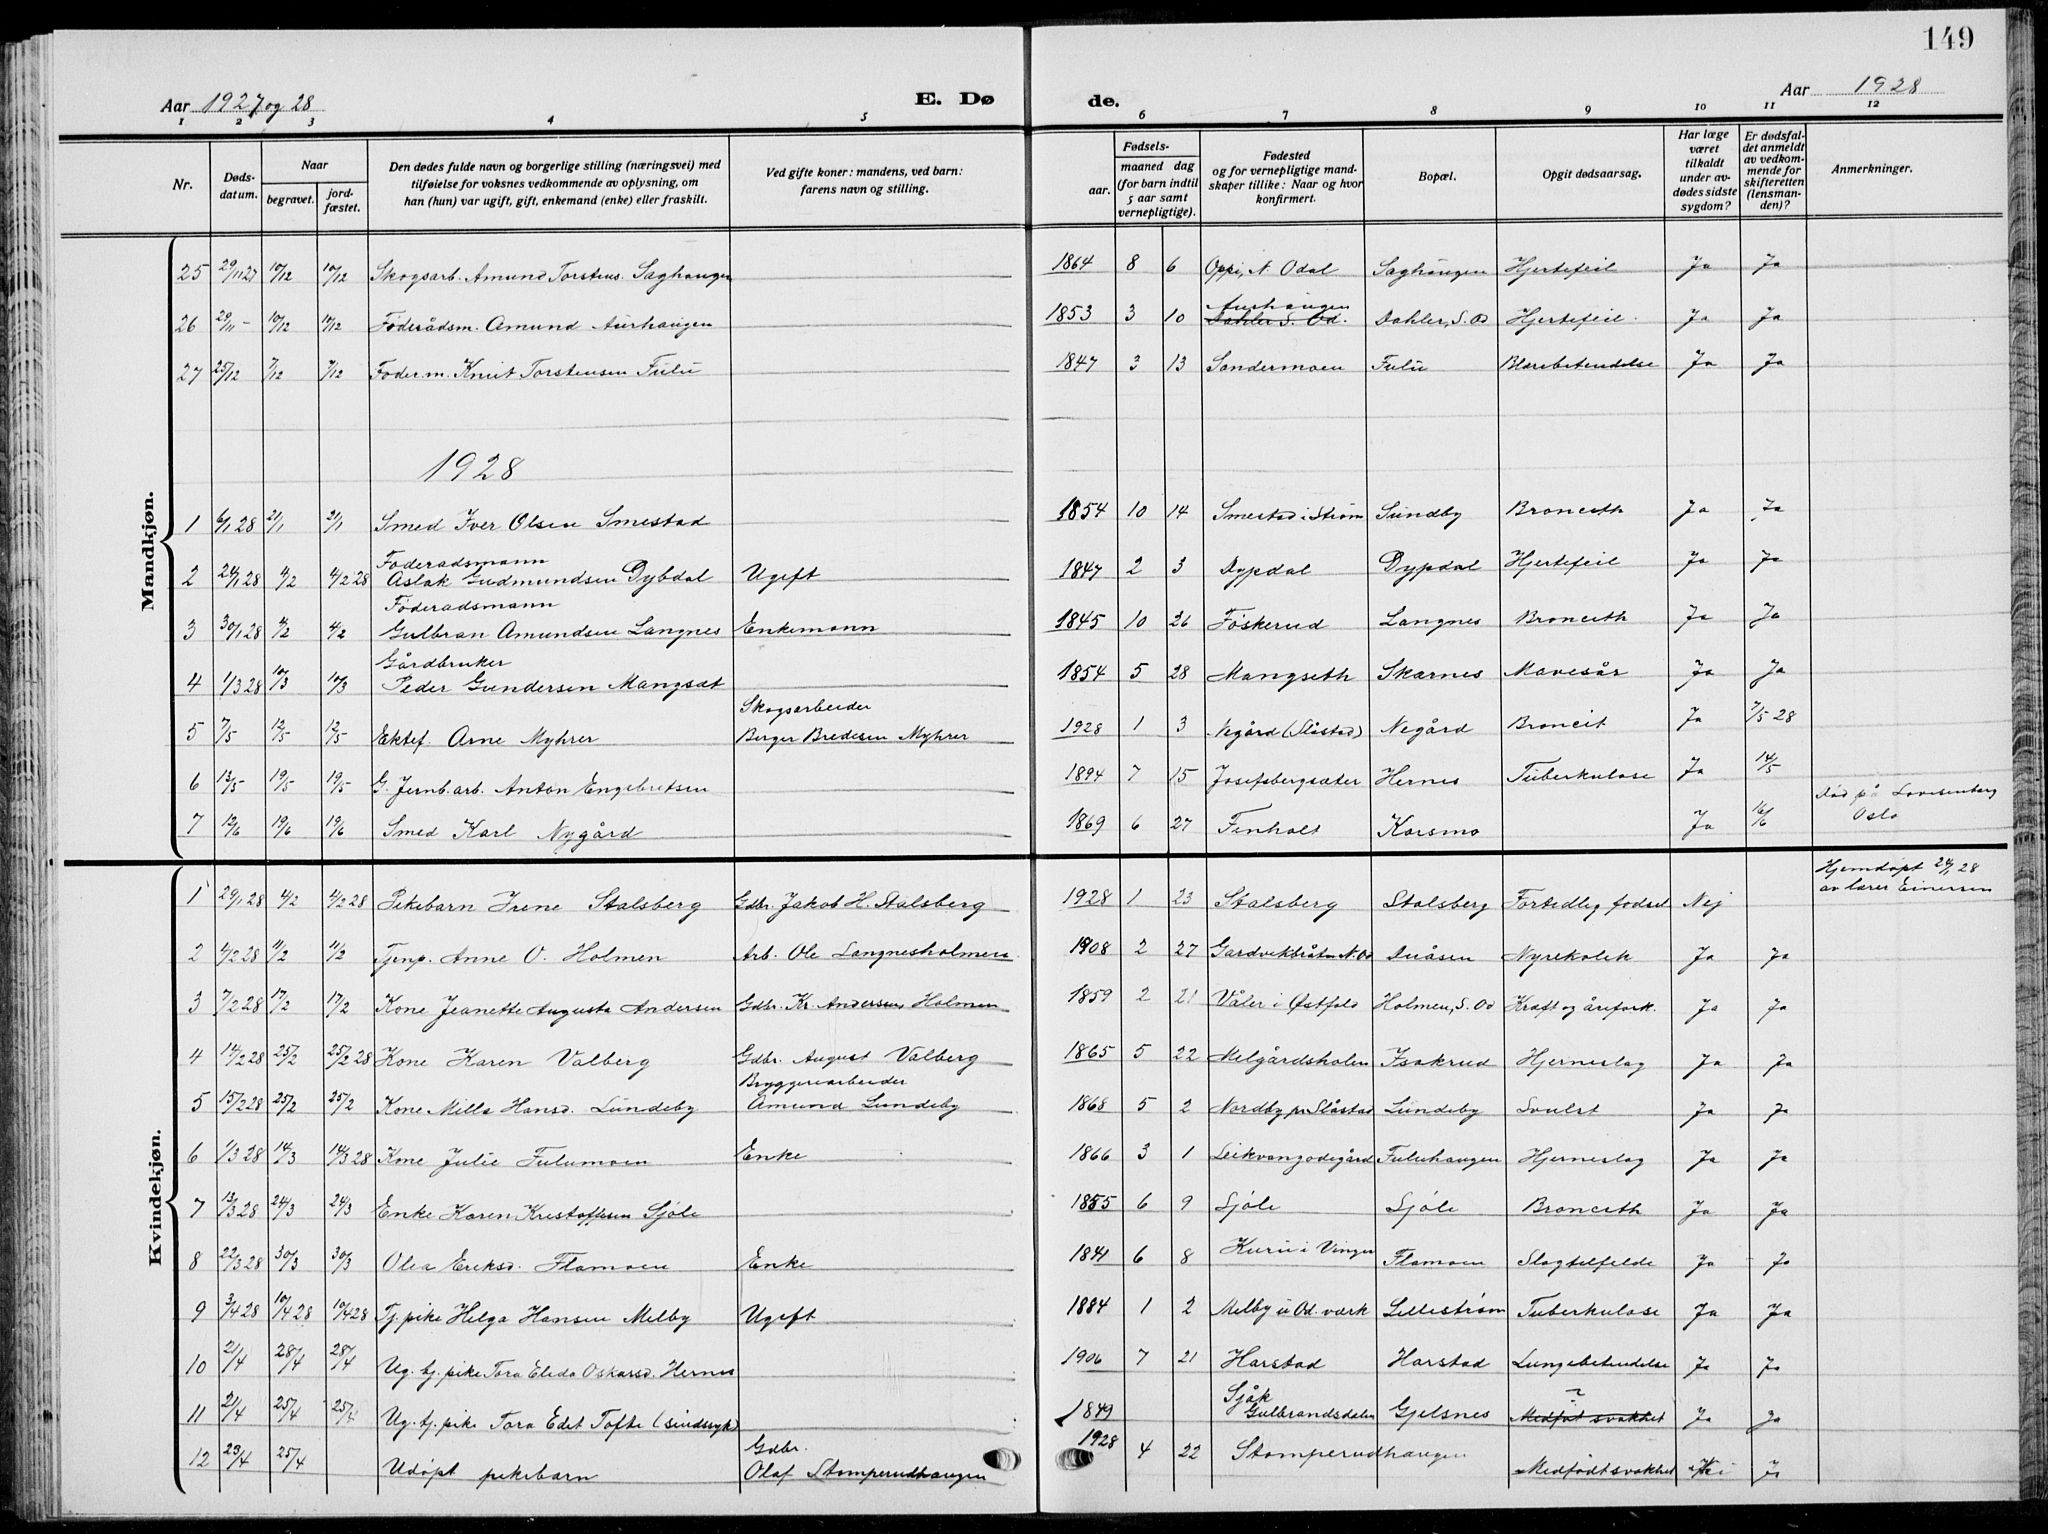 149
Aar 1927 og 28
E. Dø de.
Aar 1928
1 2 3 4 5 6 7 8 9 10 11 12
Nr. | Døds-datum. | Naar begravet. | jord-fæstet. | Den dødes fulde navn og borgerlige stilling (næringsvei) med tilføielse for voksnes vedkommende av oplysning, om han (hun) var ugift, gift, enkemand (enke) eller fraskilt. | Ved gifte koner: mandens, ved barn: farens navn og stilling. | Fødsels- aar. | maaned | dag (for barn indtil 5 aar samt vernepligtige). | Fødested og for vernepligtige mandskaper tillike: Naar og hvor konfirmert. | Bopæl. | Opgit dødsaarsag. | Har læge været tilkaldt under avdødes sidste sygdom? | Er dødsfaldet anmeldt av vedkommende for skifteretten (lensmanden)? | Anmerkninger.
Mandkjøn.
25 29/11 27 10/12 10/12 Skogsarb. Amund Torstens. Saghaugen 1864 8 6 Oppi, N. Odal Saghaugen Hjertefeil Ja Ja
26 29/11 - 10/12 10/12 Føderådsm. Amund Aurhaugen 1853 3 10 Aurhaugen Dahler S. Od. Dahler, S. Od Hjertefeil. Ja Ja
27 25/12 7/12 7/12 Føder.m. Knut Torstensen Fulu 1847 3 13 Sandermoen Fulu Blærebetendelse Ja Ja
1928
1 6/1 28 21/1 21/1 Smed Iver Olsen Smestad 1854 10 14 Smestad i Strøm Sundby Bronceth Ja Ja
Føderadsmann
2 24/1 28 4/2 4/2 28 Aslak Gudmundsen Dybdal Ugift 1847 2 3 Dypdal Dypdal Hjertefeil Ja Ja
Føderadsmann
3 30/1 28 4/2 4/2 Gulbran Amundsen Langnes Enkemann 1845 10 26 Føskerud Langnes Bronceth Ja Ja
Gårdbruker
4 1/3 28 10/3 10/3 Peder Gundersen Mangsæt 1854 5 28 Mangseth Skarnes Mavesår Ja Ja
Skogsarbeider
5 7/5 12/5 12/5 Ektef. Arne Myhrer Berger Bredesen Myhrer 1928 1 3 Negård (Slåstad) Negård Broncit Ja 7/5 28
6 13/5 - 19/5 19/5 G. Jernb.arb. Anton Engebretsen 1894 7 15 Josefsbergsæter Hernes Tuberkulose Ja 14/5
7 12/6 19/6 19/6 Smed Karl Nygård 1869 6 27 Finholt Korsmo Ja 16/6 Død på Lovisenberg Oslo
Kvindekjøn.
1 29/1 28 4/2 4/2 28 Pikebarn Irene Stalsberg Gdbr. Jakob H. Stalsberg 1928 1 23 Stalsberg Stalsberg Fortidlig fødsel Nej Hjemdøpt 24/1 28 av lærer Einersen
2 4/2 28 11/2 11/2 Tjenp. Anne O. Holmen Arb. Ole Langnesholmen 1908 2 27 Gardvikbråten N. Od Duåsen Nyrekolik Ja Ja
3 7/2 28 17/2 17/2 Kone Jeanette Augusta Andersen Gdbr. Kr. Andersen, Holmen 1859 2 21 Våler i Østfold Holmen, S. Od Kræft og årefork. Ja Ja
4 14/2 28 25/2 25/2 28 Kone Karen Valberg Gdbr. August Valberg 1865 5 22 Melgårdsholen Isakrud Hjerneslag Ja Ja
Bryggeriarbeider
5 15/2 28 25/2 25/2 Kone Milla Hansd. Lundeby Amund Lundeby 1868 5 2 Nordby pr Slåstad Lundeby Svulst Ja Ja
6 1/3 28 14/3 14/3 28 Kone Julie Fulumoen Enke 1866 3 1 Leikvangodegård Fuluhaugen Hjerneslag Ja Ja
7 13/3 28 24/3 24/3 Enke Karen Kristoffersen Sjøli 1855 6 9 Sjøli Sjøli Bronceth Ja Ja
8 22/3 28 30/3 30/3 Olea Eriksd. Flamoen Enke 1841 6 8 Kuru i Vinger Flamoen Slagtilfelde Ja Ja
9 3/4 28 10/4 28 10/4 28 Tj. pike Helga Hansen Melby Ugift 1884 1 2 Melby u Od. værk Lillestrøm Tuberkulose Ja Ja
10 21/4 28/4 28/4 Ug. tj. pike Tora Elida Oskarsd. Hernes 1906 7 21 Harstad Harstad Lungebetendelse Ja Ja
11 21/4 25/4 25/4 Ug. tj. pike Tora Edet Tofte (sindssyk) 1849 Sjåk Gulbrandsdalen Gjelsnes ? Medføt svakhet Ja Ja
12 23/4 25/4 Udøpt pikebarn Gdbr. Olaf Stomperudhaugen 1928 4 22 Stomperudhaugen Medfødt svakhet Nei Ja